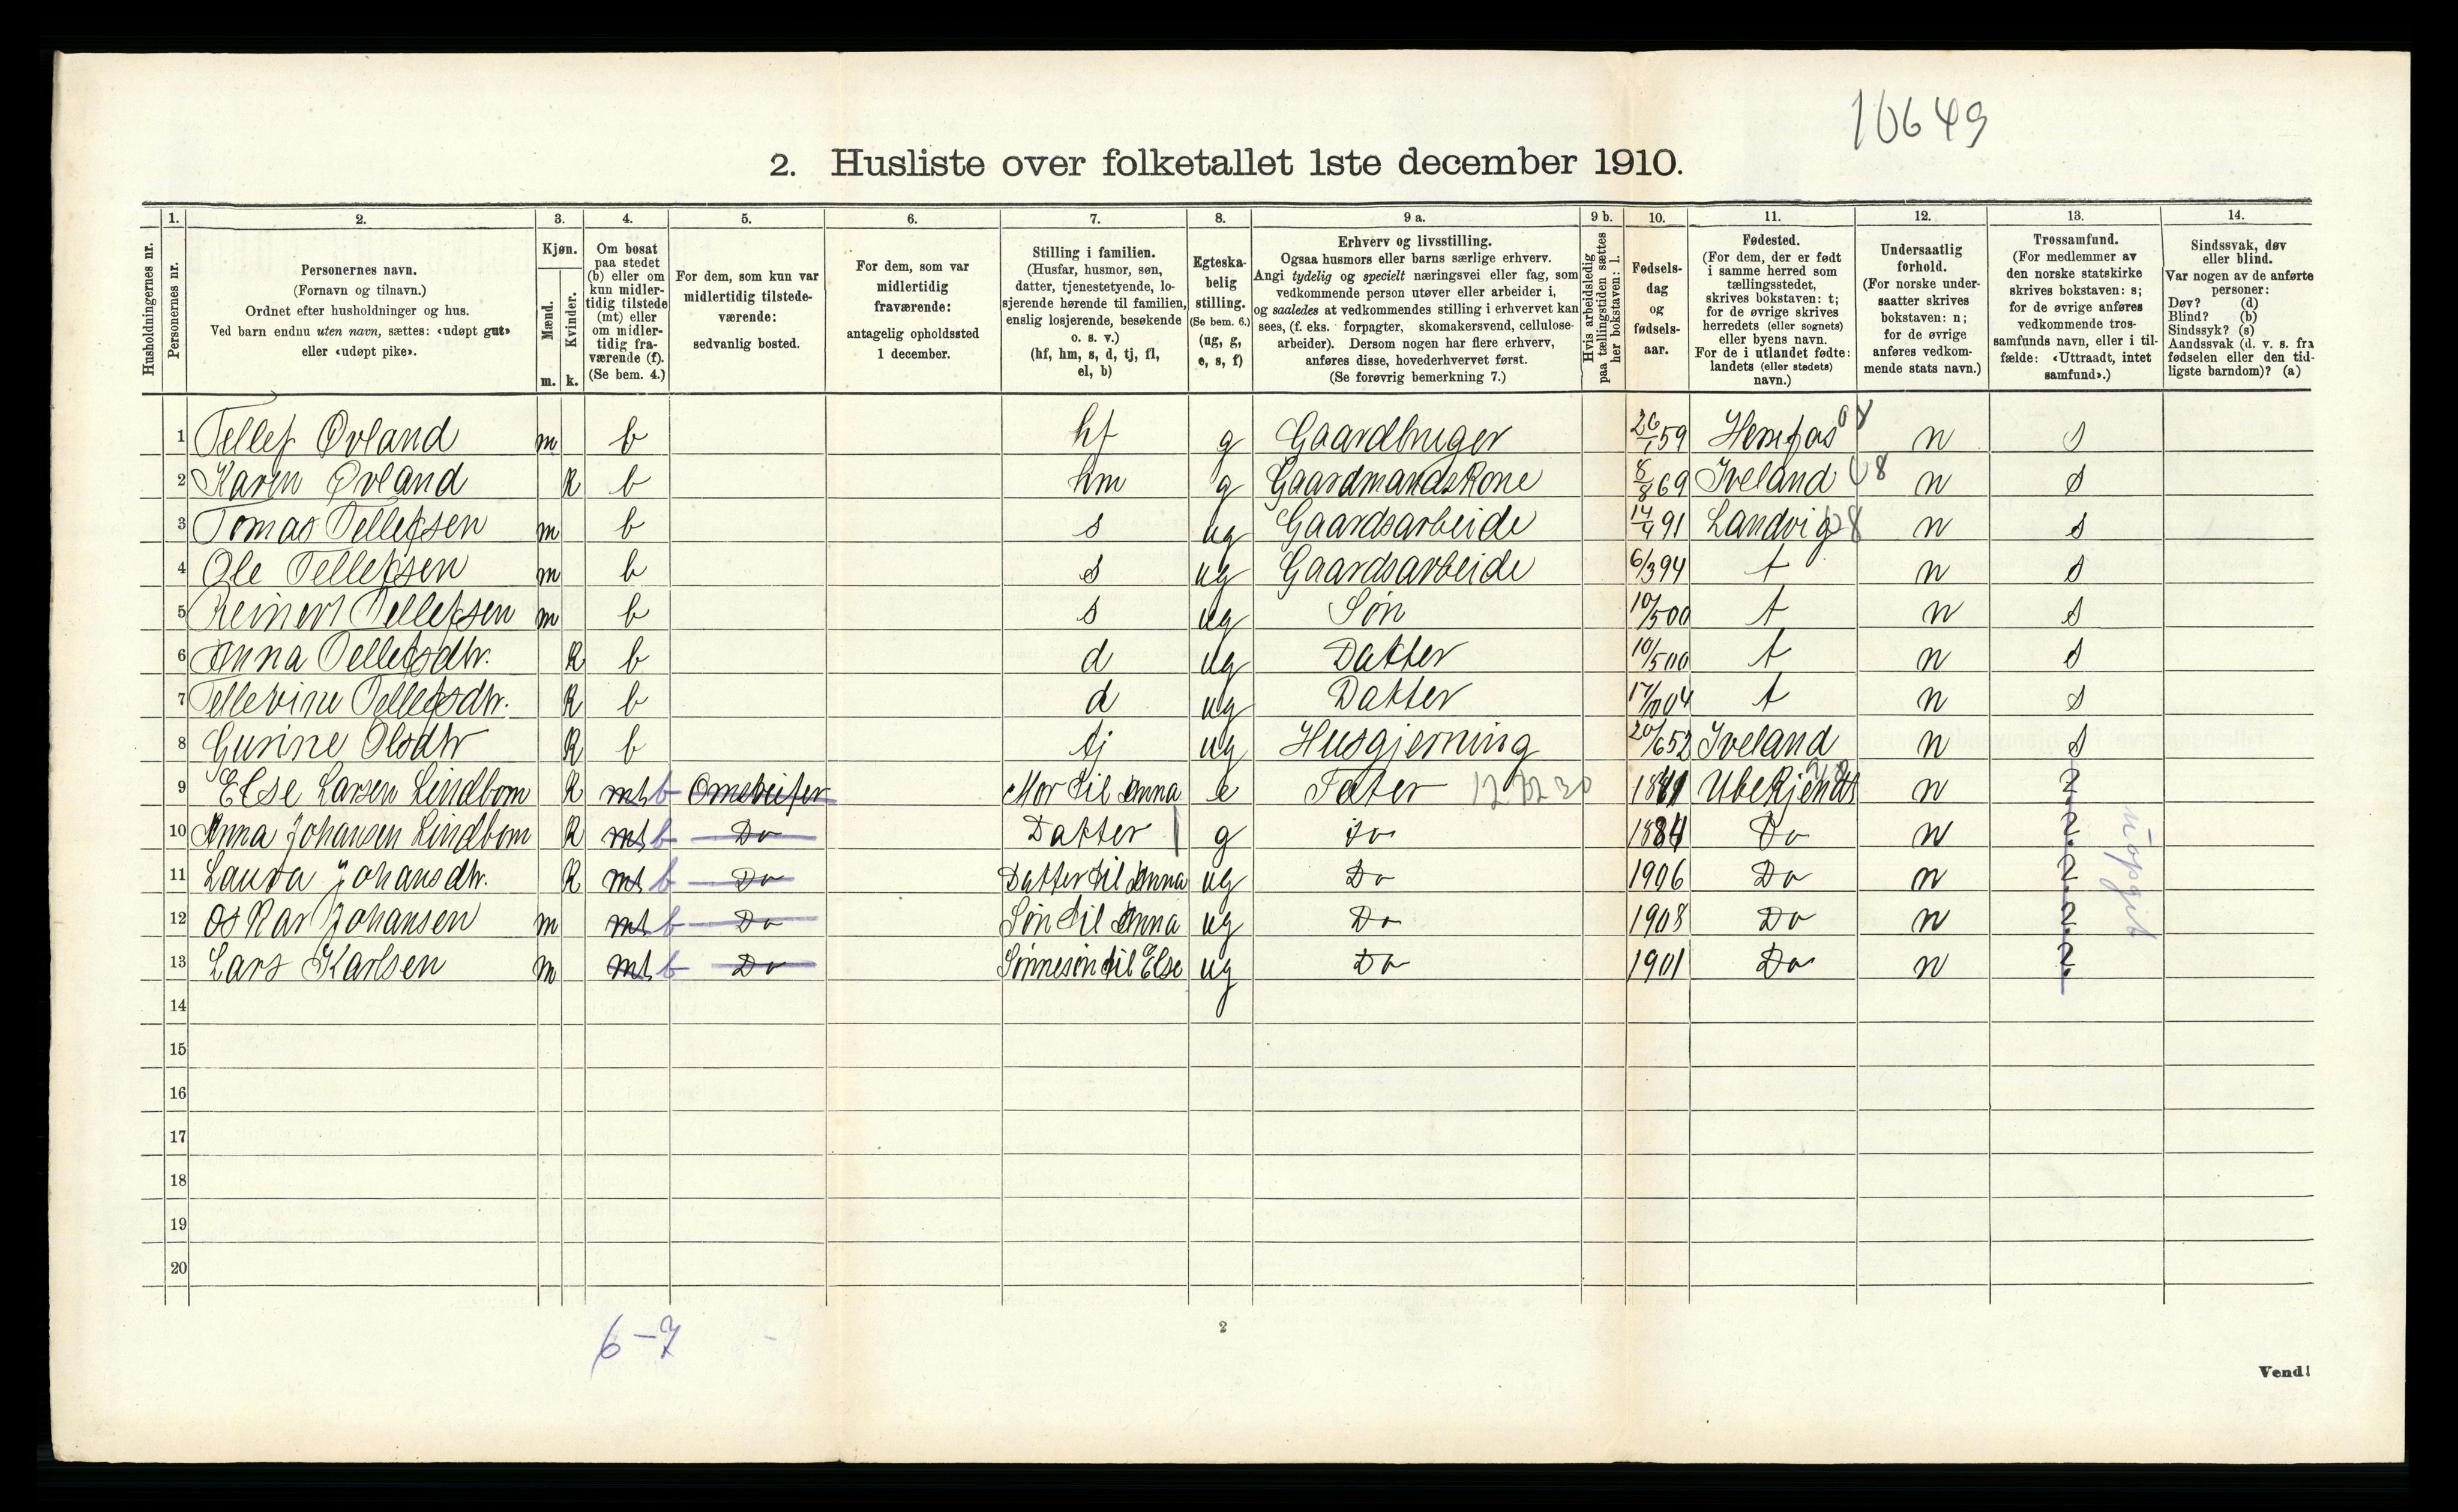 10649
2. Husliste over folketallet 1ste december 1910.
1. 2. 3. 4. 5. 6. 7. 8. 9 a. 9 b. 10. 11. 12. 13. 14.
Husholdningernes nr.
Personernes nr.
Personernes navn.
(Fornavn og tilnavn.)
Ordnet efter husholdninger og hus.
Ved barn endnu uten navn, sættes: «udøpt gut»
eller «udøpt pike».
Kjøn.
Mænd.
Kvinder.
m. k.
Om bosat
paa stedet
(b) eller om
kun midler-
tidig tilstede
(mt) eller
om midler-
tidig fra-
værende (f).
(Se bem. 4.)
For dem, som kun var
midlertidig tilstede-
værende:
sedvanlig bosted.
For dem, som var
midlertidig
fraværende:
antagelig opholdssted
1 december.
Stilling i familien.
(Husfar, husmor, søn,
datter, tjenestetyende, lo-
sjerende hørende til familien,
enslig losjerende, besøkende
o. s. v.)
(hf, hm, s, d, tj, fl,
el, b)
Egteska-
belig
stilling.
(Se bem. 6.)
(ug, g,
e, s, f)
Erhverv og livsstilling.
Ogsaa husmors eller barns særlige erhverv.
Angi tydelig og specielt næringsvei eller fag, som
vedkommende person utøver eller arbeider i,
og saaledes at vedkommendes stilling i erhvervet kan
sees, (f. eks. forpagter, skomakersvend, cellulose-
arbeider). Dersom nogen har flere erhverv,
anføres disse, hovederhvervet først.
(Se forøvrig bemerkning 7.)
Hvis arbeidsledig
paa tællingstiden sættes
her bokstaven: l.
Fødsels-
dag
og
fødsels-
aar.
Fødested.
(For dem, der er født
i samme herred som
tællingsstedet,
skrives bokstaven: t;
for de øvrige skrives
herredets (eller sognets)
eller byens navn.
For de i utlandet fødte:
landets (eller stedets)
navn.)
Undersaatlig
forhold.
(For norske under-
saatter skrives
bokstaven: n;
for de øvrige
anføres vedkom-
mende stats navn.)
Trossamfund.
(For medlemmer av
den norske statskirke
skrives bokstaven: s;
for de øvrige anføres
vedkommende tros-
samfunds navn, eller i til-
fælde: «Uttraadt, intet
samfund».)
Sindssvak, døv
eller blind.
Var nogen av de anførte
personer:
Døv? (d)
Blind? (b)
Sindssyk? (s)
Aandssvak (d. v. s. fra
fødselen eller den tid-
ligste barndom)? (a)
1 Tellef Øvland m b hf g Gaardbruger 26/1 59 08 n s
2 Karen Øvland K b hm g Gaardmandskone 8/8 69 Iveland 08 n s
3 Tomas Tellefsen m b s ug Gaardsarbeide 14/4 91 Landvig 08 n s
4 Ole Tellefsen m b s ug Gaardsarbeide 6/3 94 t n s
5 Reinert Tellefsen m b s ug Søn 10/5 00 t n s
6 Anna Tellefsdtr. K b d ug Datter 10/5 00 t n s
7 Tellevine Tellefsdtr. K b d ug Datter 17/10 04 t n s
8 Gurine Olsdtr K b tj ug Husgjerning 20/6 52 Iveland n s
9 Else Larsen Lindbom K mt b Omstreifer Mor til Anna e Tater 1841 Ubekjendt n ?
10 Anna Johansen Lindbom K mt b Do Datter g Do 1884 Do n ?
11 Laura Johansdtr. K mt b Do Datter til Anna ug Do 1906 Do n ?
12 Oskar Johansen m mt b Do Søn til Anna ug Do 1908 Do n ?
13 Lars Karlsen m mt b Do Sønnesøn til Else ug Do 1901 Do n ?
uopgit
14
15
16
17
18
19
20
6-7
2
Vend!